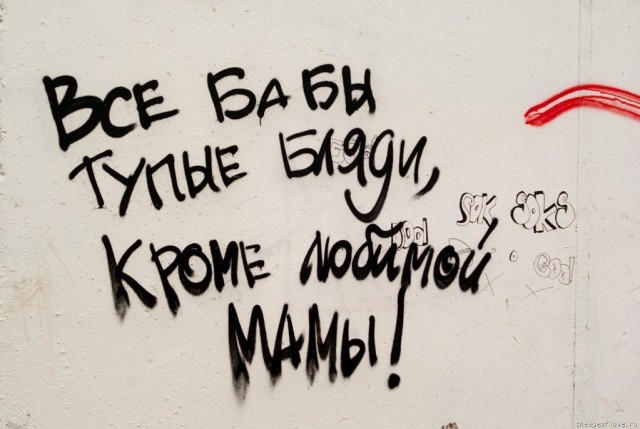 Все бабы
тупые бляди,
кроме любимой
мамы!
SOK SOKS
theageoflove.ru